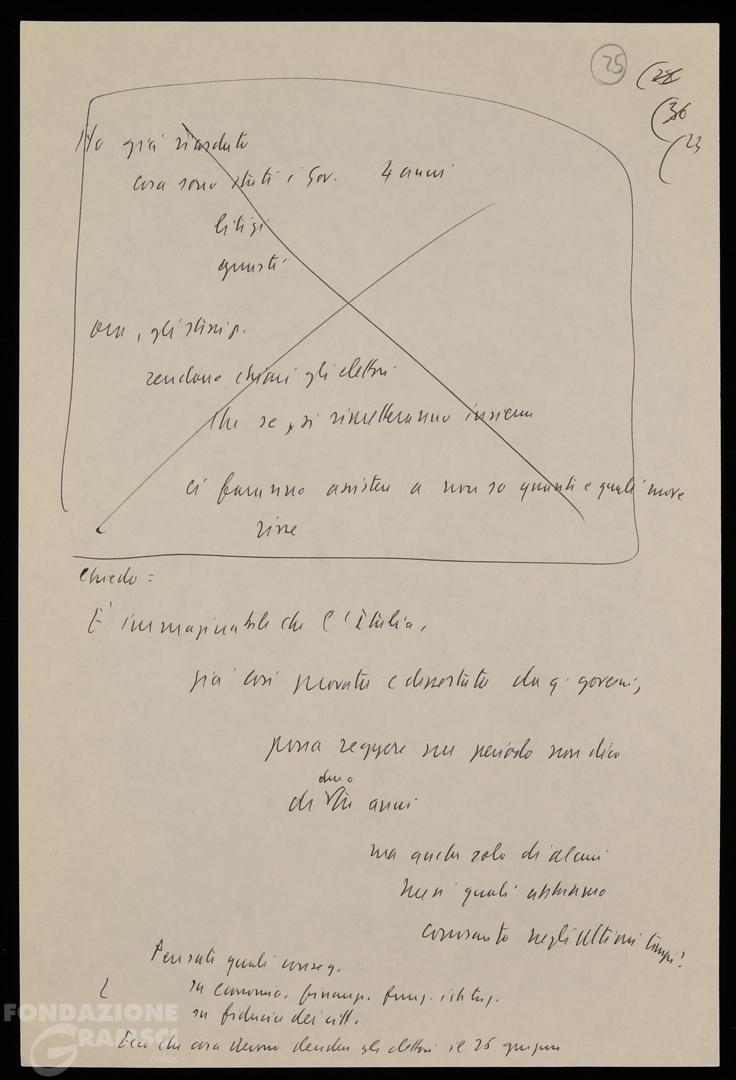 25
(28
(36
(23
Ho già riassunto
cosa sono stati i Gov. 4 anni
litigi
guasti
ora, gli stessi p.
rendono chiari gli elettori
che se, si rimetteranno insieme
ci faranno assistere a non so quanti e quali nuove
risse
Chiedo:
E' immaginabile che l'Italia,
già così provata e dissestata da q. governi,
possa reggere un periodo non dico
due o
di tre anni
ma anche solo di alcuni
mesi quali abbiamo
conosciuto negli ultimi tempi?
Pensate quali conseg.
su economia, finanz. funz. istituz.
su fiducia dei citt.
Ecco che cosa devono decidere gli elettori il 26 giugno
FONDAZIONE
GRAMSCI
onlus